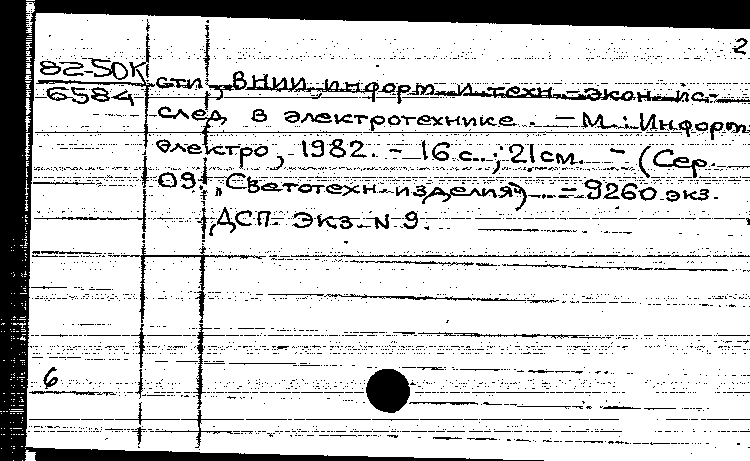 2
82-50К сти, ВНИИ информ. и техн.-экон. ис-
6584
след. в электротехнике. - М.: Информ-
электро, 1982. - 16 с.; 21 см. - (Сер.
09. "Светотехн. изделия"). - 9260 экз.
ДСП. Экз. N 9.
6